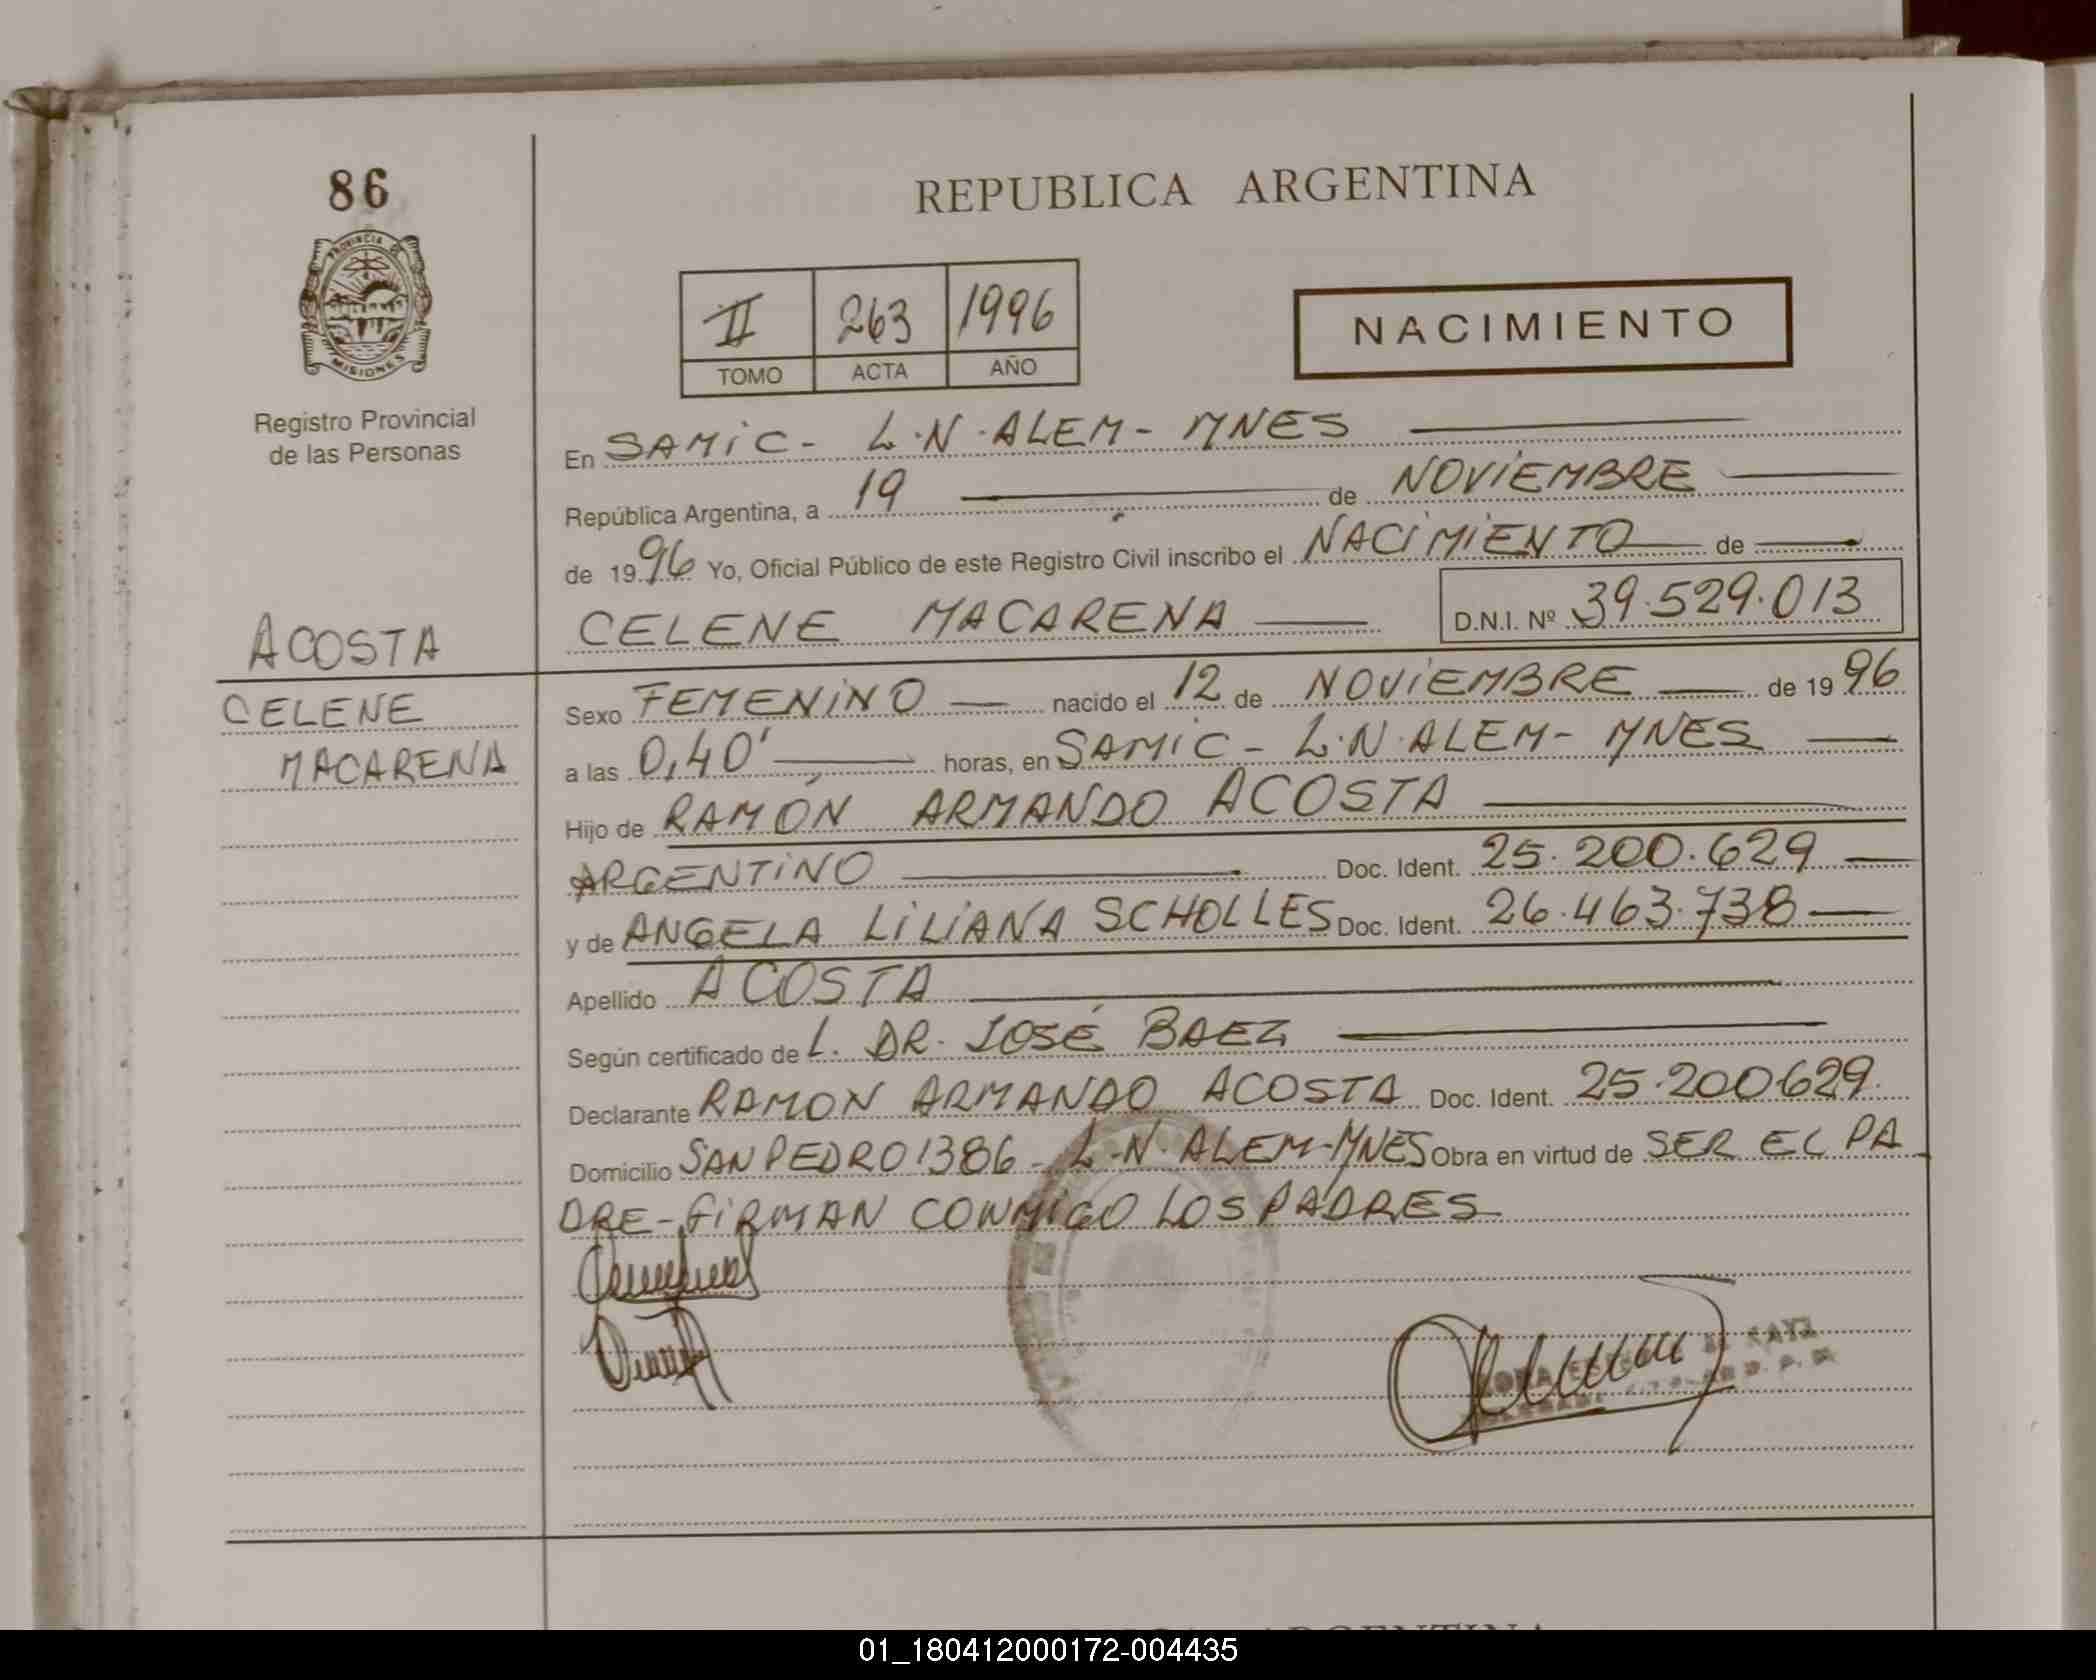 86
REPUBLICA ARGENTINA
PROVINCIA DE
MISIONES
Registro Provincial
de las Personas
II 263 1996
TOMO ACTA AÑO
NACIMIENTO
En SAMIC - L.N. ALEM - MNES
República Argentina, a 19 de NOVIEMBRE
de 1996 Yo, Oficial Público de este Registro Civil inscribo el NACIMIENTO de
CELENE MACARENA D.N.I. Nº 39.529.013
ACOSTA
CELENE
MACARENA
Sexo FEMENINO nacido el 12 de NOVIEMBRE de 1996
a las 0,40' horas, en SAMIC - L.N. ALEM - MNES
Hijo de RAMÓN ARMANDO ACOSTA
ARGENTINO Doc. Ident. 25.200.629
y de ANGELA LILIANA SCHOLLES Doc. Ident. 26.463.738
Apellido ACOSTA
Según certificado de L. DR. JOSÉ BAEZ
Declarante RAMON ARMANDO ACOSTA Doc. Ident. 25.200629.
Domicilio SAN PEDRO 1386 - L.N. ALEM - MNES Obra en virtud de SER EL PA
DRE - FIRMAN CONMIGO LOS PADRES
ARGENTINA
01_180412000172-004435